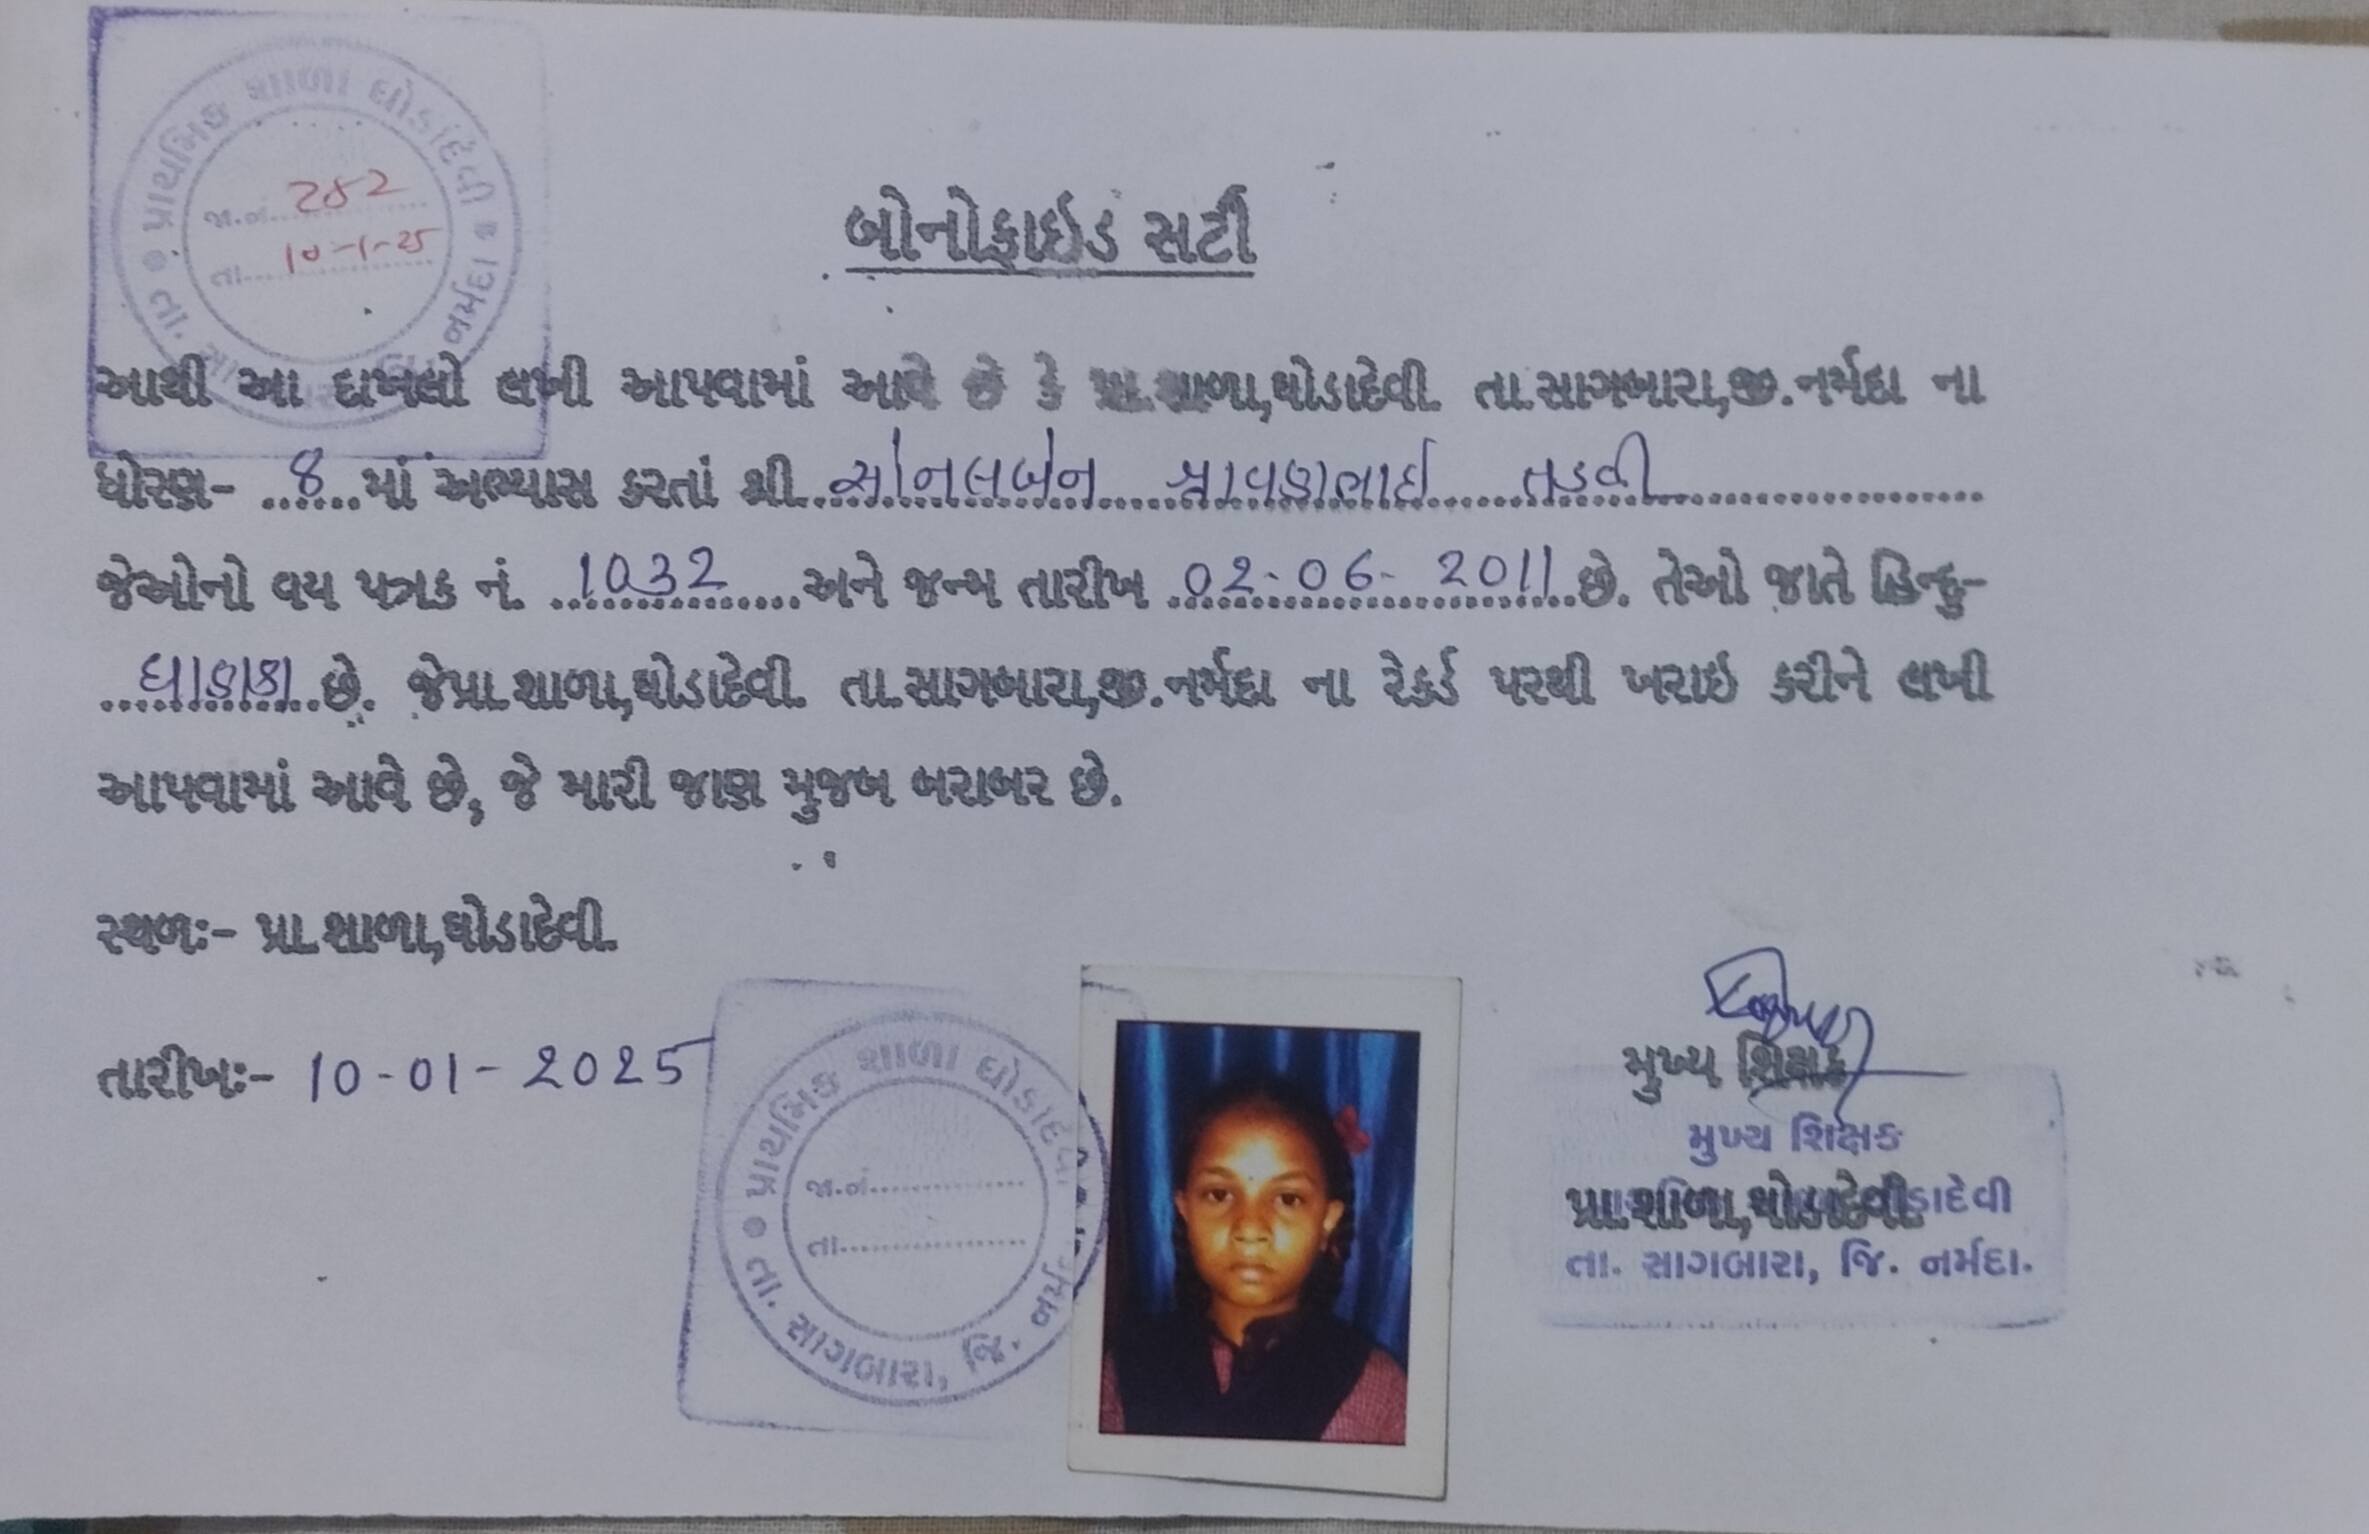 પ્રાથમિક શાળા ઘોડાદેવી
જા.નં. 282
તા. 10-1-25
તા. સાગબારા, જિ. નર્મદા
બોનોફાઇડ સર્ટી
આથી આ દાખલો લખી આપવામાં આવે છે કે પ્રા.શાળા,ઘોડાદેવી. તા.સાગબારા,જી.નર્મદા ના
ધોરણ- 8 માં અભ્યાસ કરતાં શ્રી સોનલબેન શ્રાવણભાઇ તડવી
જેઓનો વય પત્રક નં. 1032 અને જન્મ તારીખ 02-06-2011 છે. તેઓ જાતે હિન્દુ-
ધાણકા છે. જેપ્રા.શાળા,ઘોડાદેવી. તા.સાગબારા,જી.નર્મદા ના રેકર્ડ પરથી ખરાઇ કરીને લખી
આપવામાં આવે છે, જે મારી જાણ મુજબ બરાબર છે.
સ્થળઃ- પ્રા.શાળા,ઘોડાદેવી.
તારીખઃ- 10-01-2025
પ્રાથમિક શાળા ઘોડાદેવી
જા.નં.
તા.
તા. સાગબારા, જિ.
મુખ્ય શિક્ષક
મુખ્ય શિક્ષક
પ્રા.શાળા,ઘોડાદેવી.
તા. સાગબારા, જિ. નર્મદા.